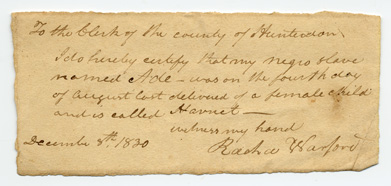 To the Clerk of the county of Hunterdon
I do hereby certify that my negro slave
named Ade – was on the fourth day
of August last delivered of a female child
and is called Harriet —
witness my hand
December 8th 1820
Warford